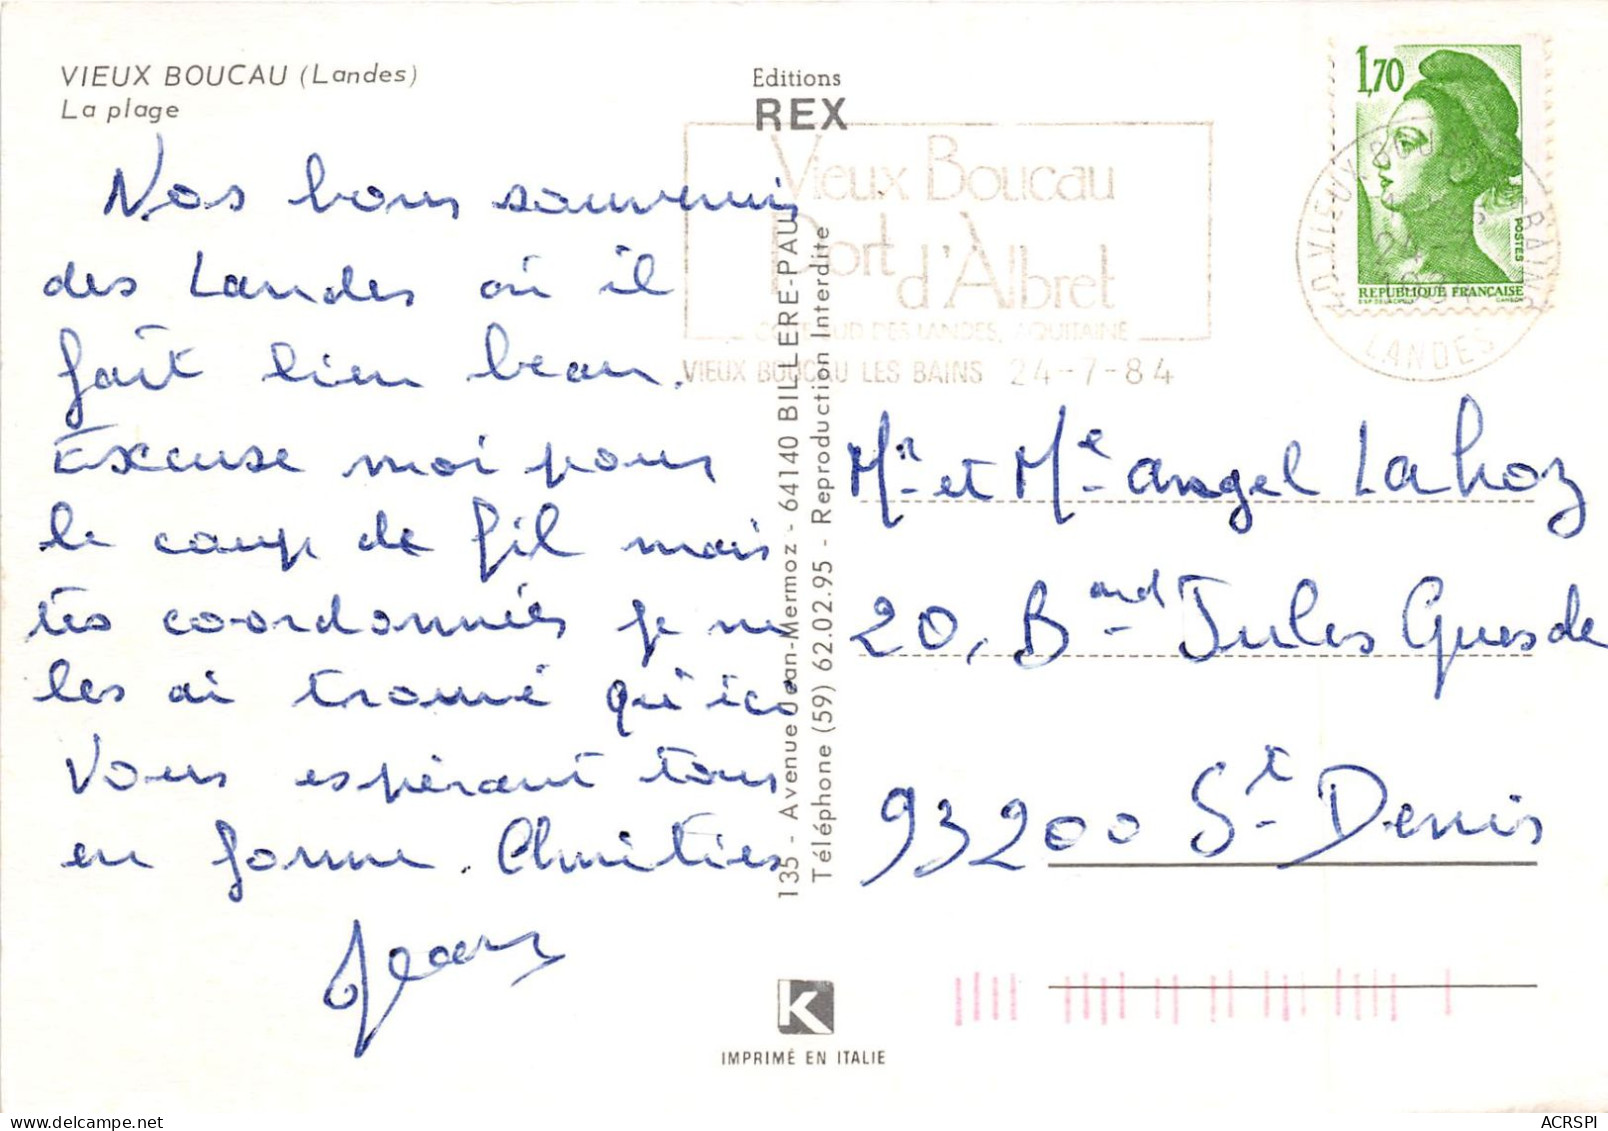 VIEUX BOUCAU (Landes)
La plage
Nos bons souvenirs
des Landes où il
fait bien beau.
Excuse moi pour
le coup de fil mais
tes coordonnées je ne
les ai trouvé qu'ici
Vous espérant tous
en forme. Amitiés
Jean
Editions
REX
135 - Avenue Jean-Mermoz - 64140 BILLERE-PAU
Téléphone (59) 62.02.95 - Reproduction Interdite
Vieux Boucau
Port
d'Albret
COTE SUD DES LANDES, AQUITAINE
VIEUX BOUCAU LES BAINS 24-7-84
1,70
POSTES
REPUBLIQUE FRANÇAISE
LANDES
Mr et Me Angel Lahoz
20, Bard Jules Guesde
93200 St Denis
K
IMPRIMÉ EN ITALIE
ACRSPI